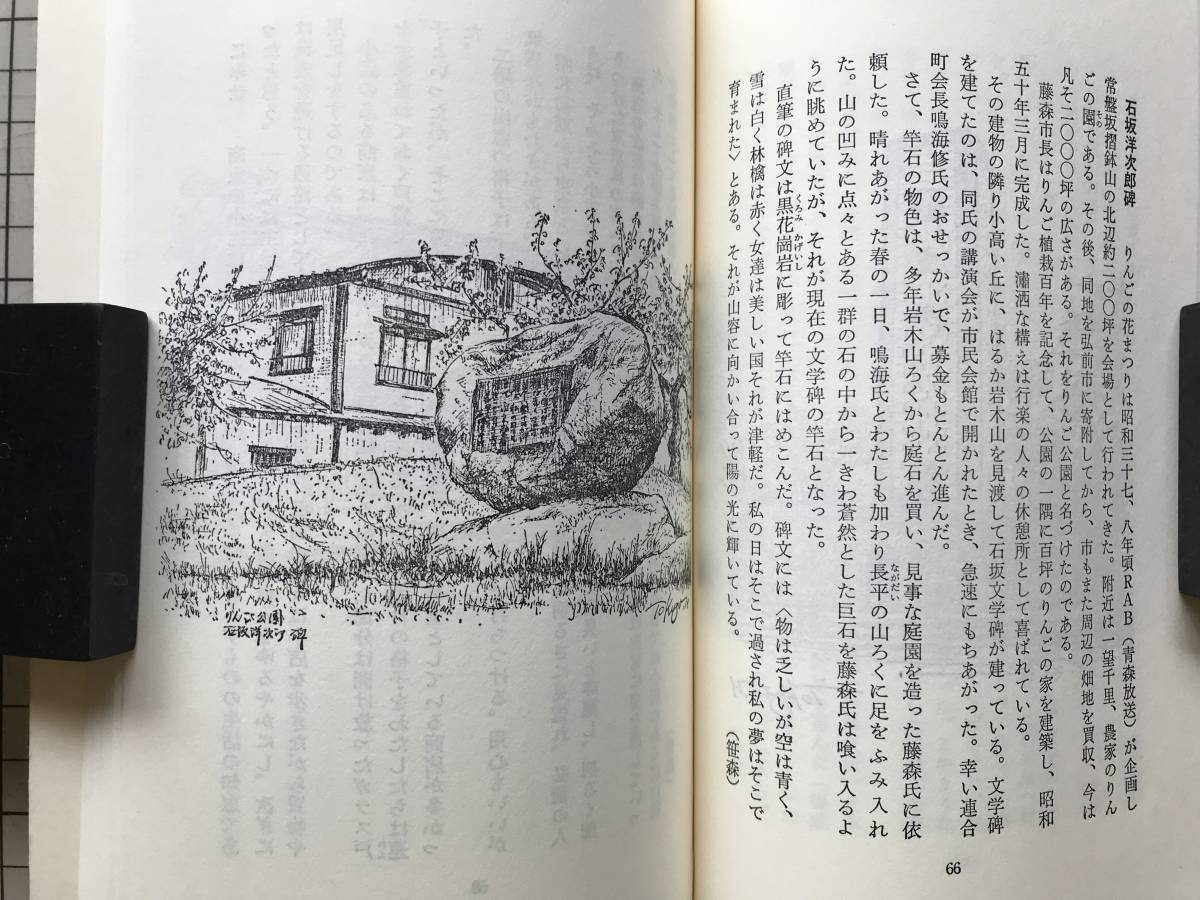 石坂洋次郎碑　りんごの花まつりは昭和三十七、八年頃RAB（青森放送）が企画し
常盤坂摺鉢山の北辺約二〇〇坪を会場として行われてきた。附近は一望千里、農家のりん
ごの園である。その後、同地を弘前市に寄附してから、市もまた周辺の畑地を買収、今は
凡そ二〇〇〇坪の広さがある。それをりんご公園と名づけたのである。
藤森市長はりんご植栽百年を記念して、公園の一隅に百坪のりんごの家を建築し、昭和
五十年三月に完成した。瀟洒な構えは行楽の人々の休憩所として喜ばれている。
その建物の隣り小高い丘に、はるか岩木山を見渡して石坂文学碑が建っている。文学碑
を建てたのは、同氏の講演会が市民会館で開かれたとき、急速にもちあがった。幸い連合
町会長鳴海修氏のおせっかいで、募金もとんとん進んだ。
さて、竿石の物色は、多年岩木山ろくから庭石を買い、見事な庭園を造った藤森氏に依
頼した。晴れあがった春の一日、鳴海氏とわたしも加わり長平の山ろくに足をふみ入れ
た。山の凹みに点々とある一群の石の中から一きわ蒼然とした巨石を藤森氏は喰い入るよ
うに眺めていたが、それが現在の文学碑の竿石となった。
直筆の碑文は黒花崗岩に彫って竿石にはめこんだ。碑文には〈物は乏しいが空は青く、
雪は白く林檎は赤く女達は美しい国それが津軽だ。私の日はそこで過され私の夢はそこで
育まれた〉とある。それが山容に向かい合って陽の光に輝いている。
（笹森）
その
ながだい
くろみかげいし
66
りんご公園
石坂洋次郎碑